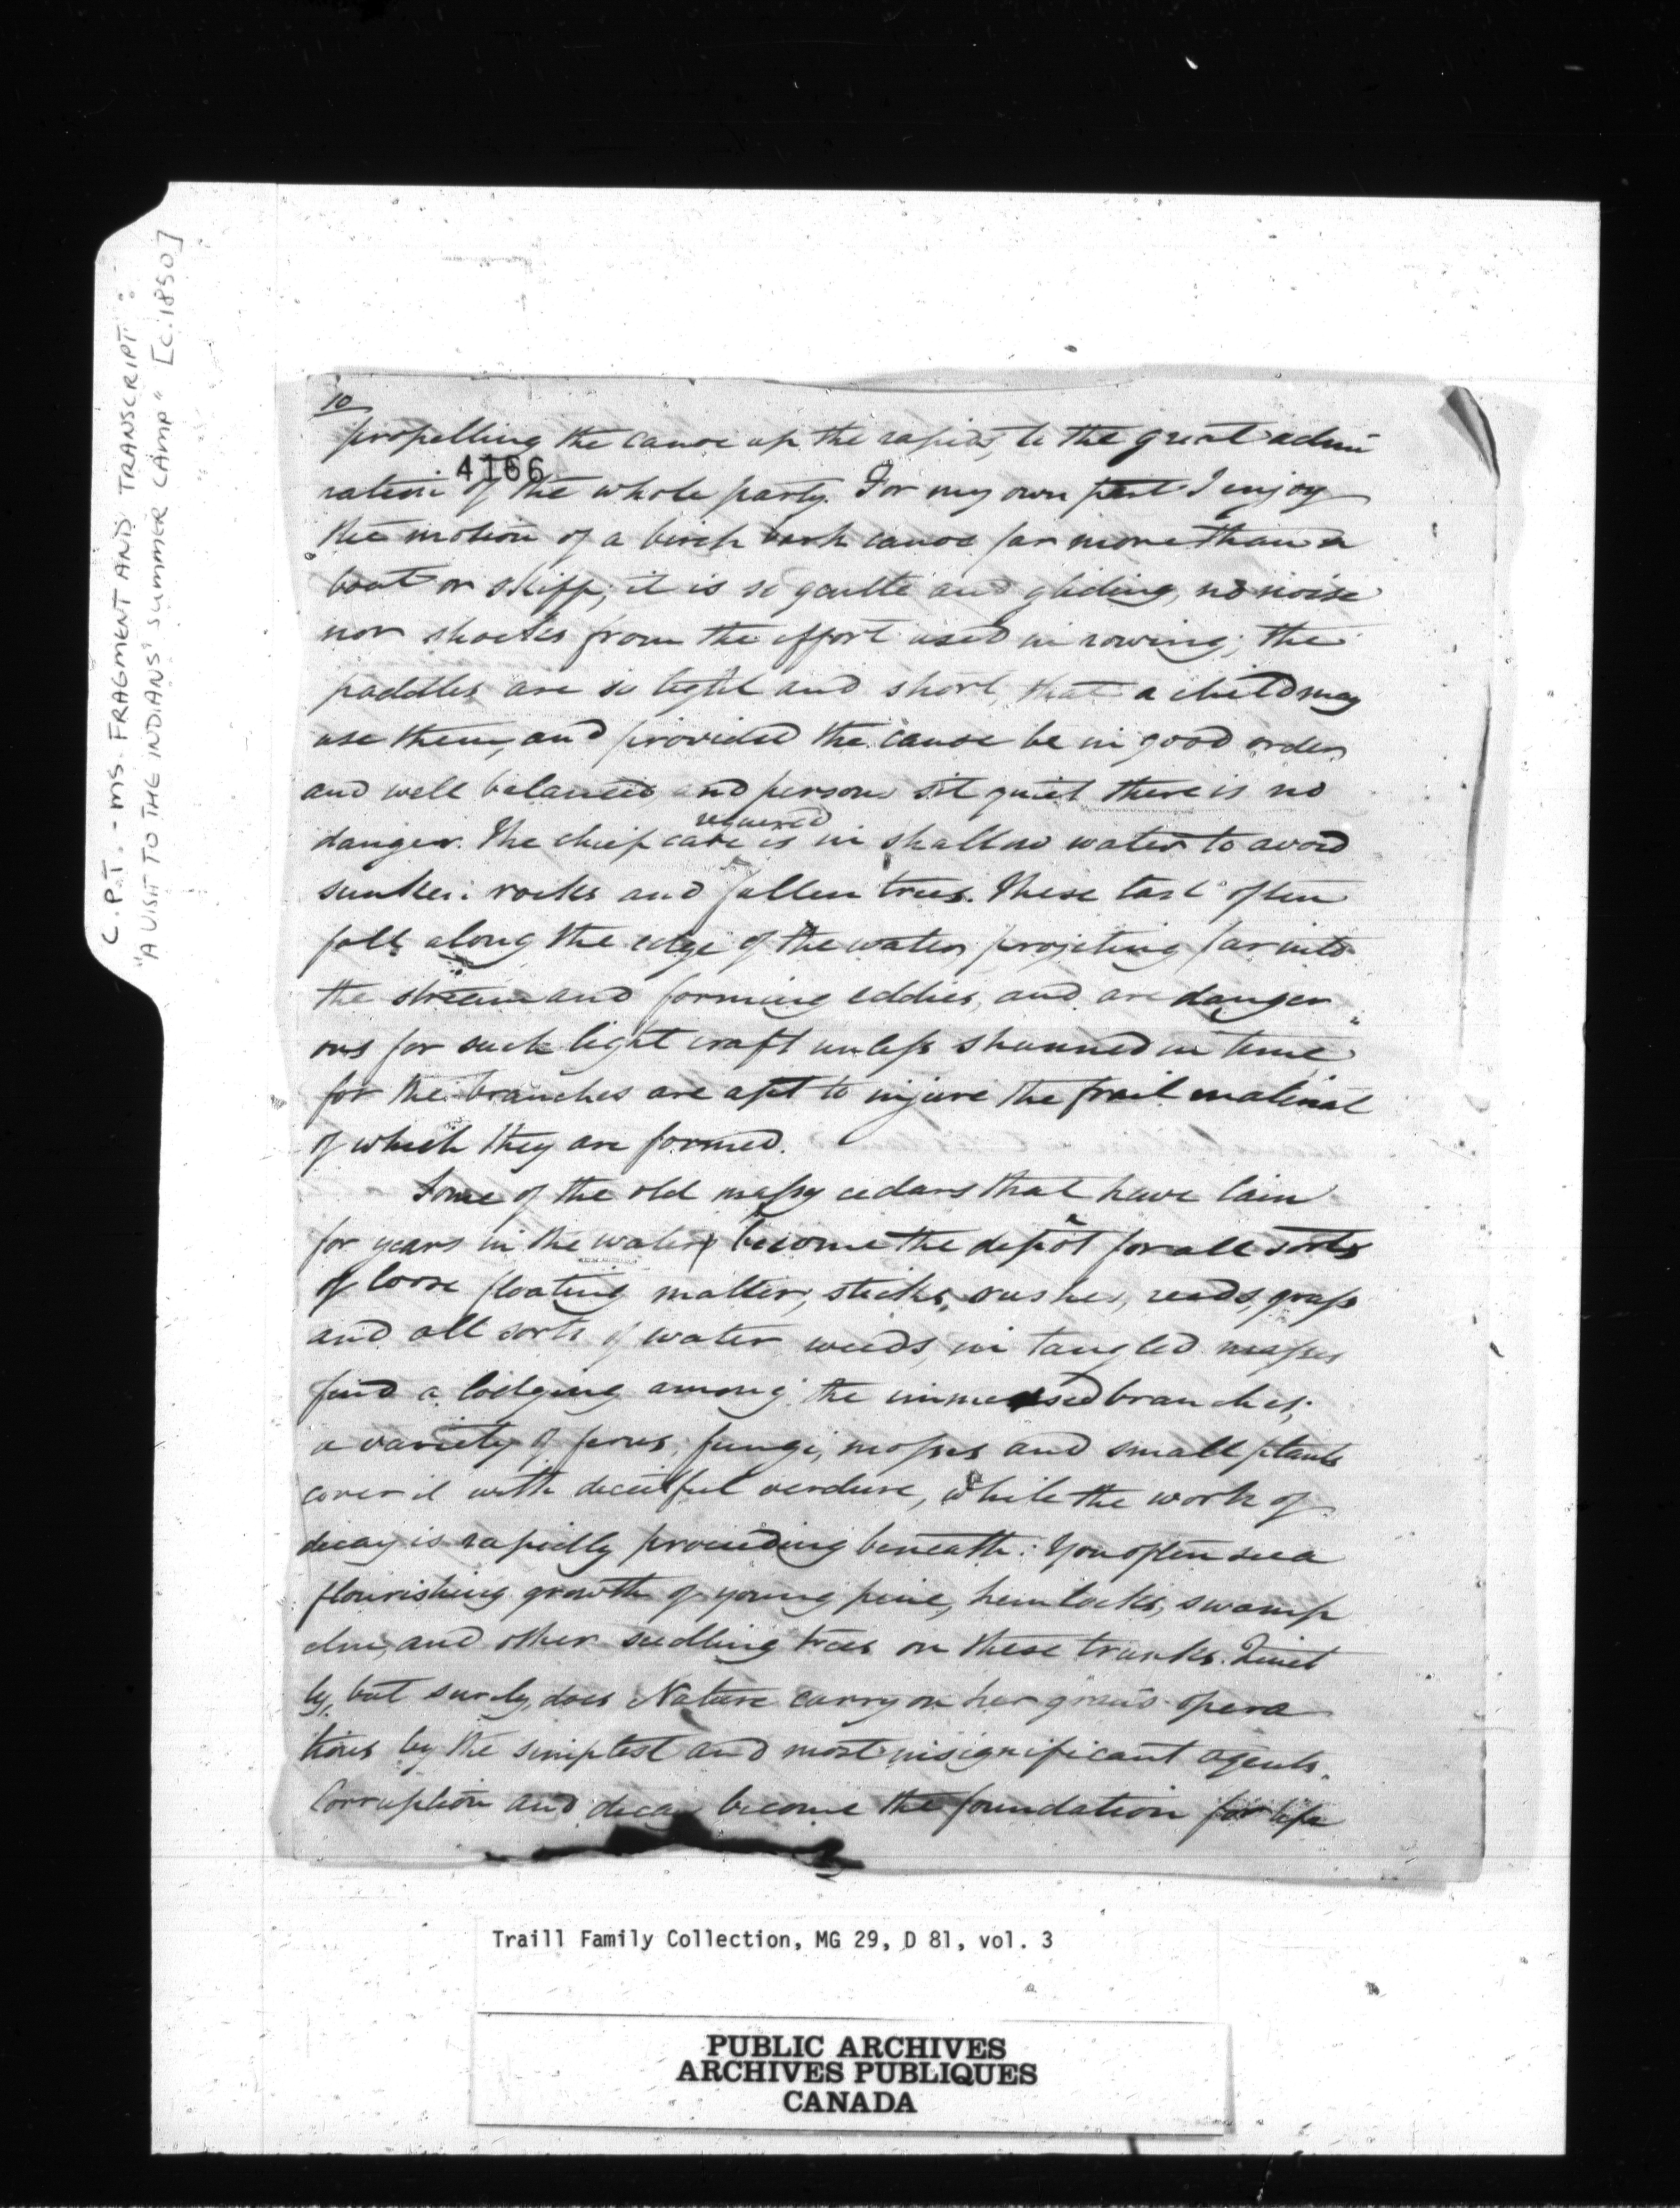 C.P.T. - MS. FRAGMENT AND TRANSCRIPT:
"A VISIT TO THE INDIANS' SUMMER CAMP" [C.1850]
10
propelling the canoe up the rapids, to the great admi
4166
ration of the whole party. For my own part I enjoy
the motion of a birch bark canoe far more than a
boat or skiff; it is so gentle and gliding, no noise
nor shocks from the effort used in rowing; the
paddles are so light and short, that a child may
use them, and provided the canoe be in good order
and well balanced and persons sit quiet there is no
danger. The chief care required is in shallow water to avoid
sunken rocks and fallen trees. These last often
fall along the edge of the water projecting far into
the stream and forming eddies, and are danger
ous for such light craft unless shunned in time
for the branches are apt to injure the frail material
of which they are formed.
Some of the old massy cedars that have lain
for years in the water become the depôt for all sorts
of loose floating matter, sticks, rushes, reeds, grass
and all sorts of water weeds, in tangled masses
find a lodging among the immersed branches;
a variety of ferns, fungi, mosses and small plants
cover it with deceitful verdure, while the work of
decay is rapidly proceeding beneath: You often see a
flourishing growth of young pine, hemlocks, swamp
elm, and other seedling trees on these trunks. Quiet
ly, but surely, does Nature carry on her grand opera
tions by the simplest and most insignificant agents.
Corruption and decay become the foundation for life
Traill Family Collection, MG 29, D 81, vol. 3
PUBLIC ARCHIVES
ARCHIVES PUBLIQUES
CANADA